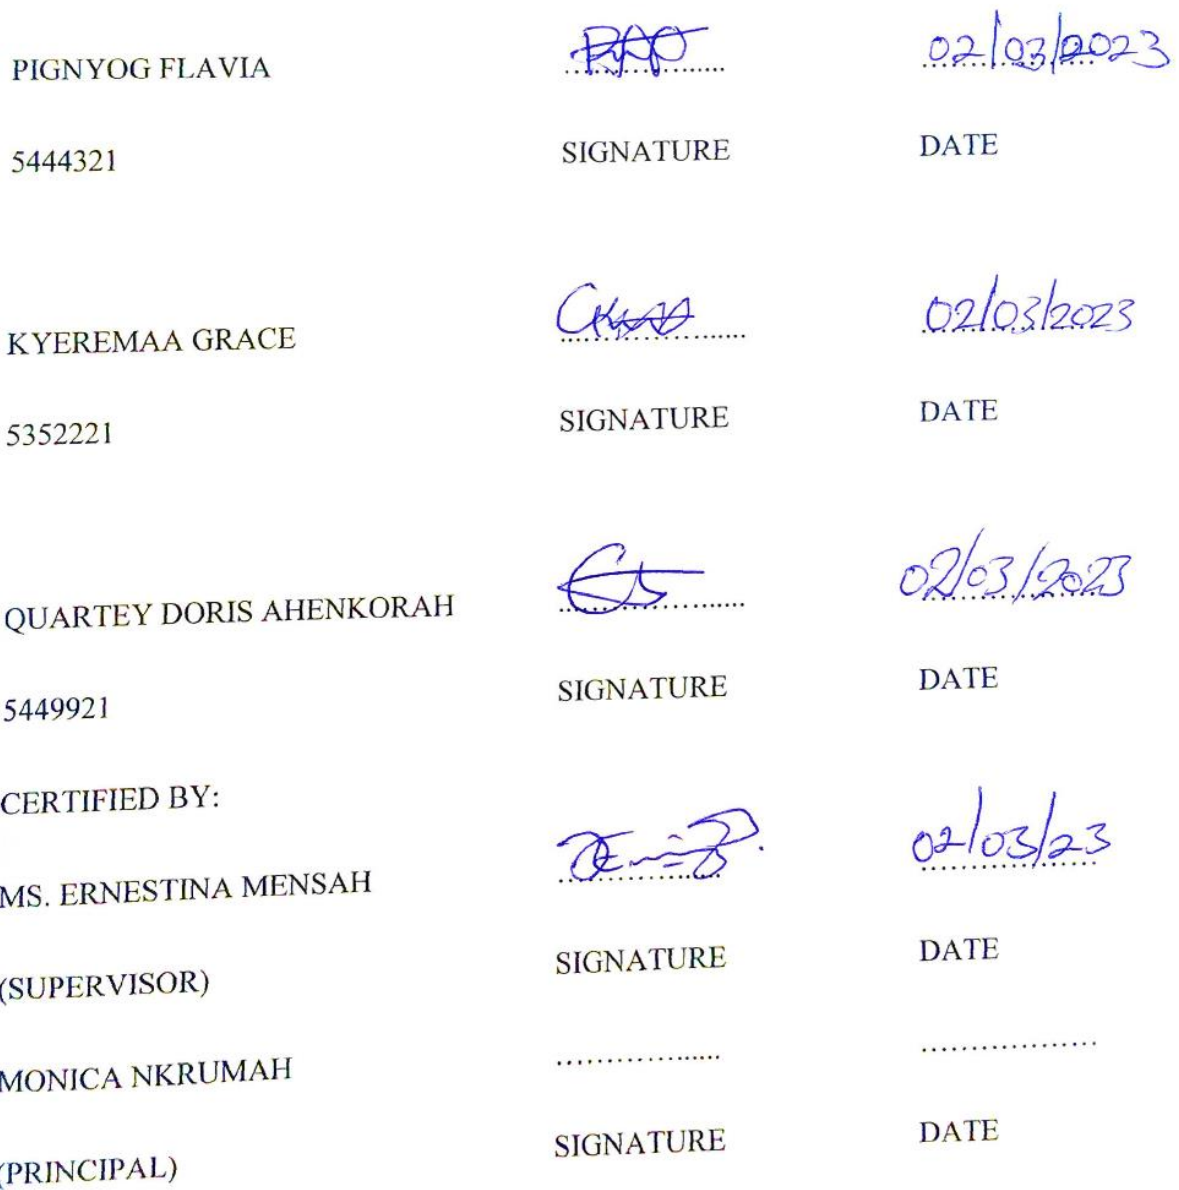 PIGNYOG FLAVIA ..................... 02/03/2023
5444321 SIGNATURE DATE
KYEREMAA GRACE ..................... 02/03/2023
5352221 SIGNATURE DATE
QUARTEY DORIS AHENKORAH ..................... 02/03/2023
5449921 SIGNATURE DATE
CERTIFIED BY:
MS. ERNESTINA MENSAH ..................... 02/03/23
(SUPERVISOR) SIGNATURE DATE
MONICA NKRUMAH ..................... ..................
(PRINCIPAL) SIGNATURE DATE